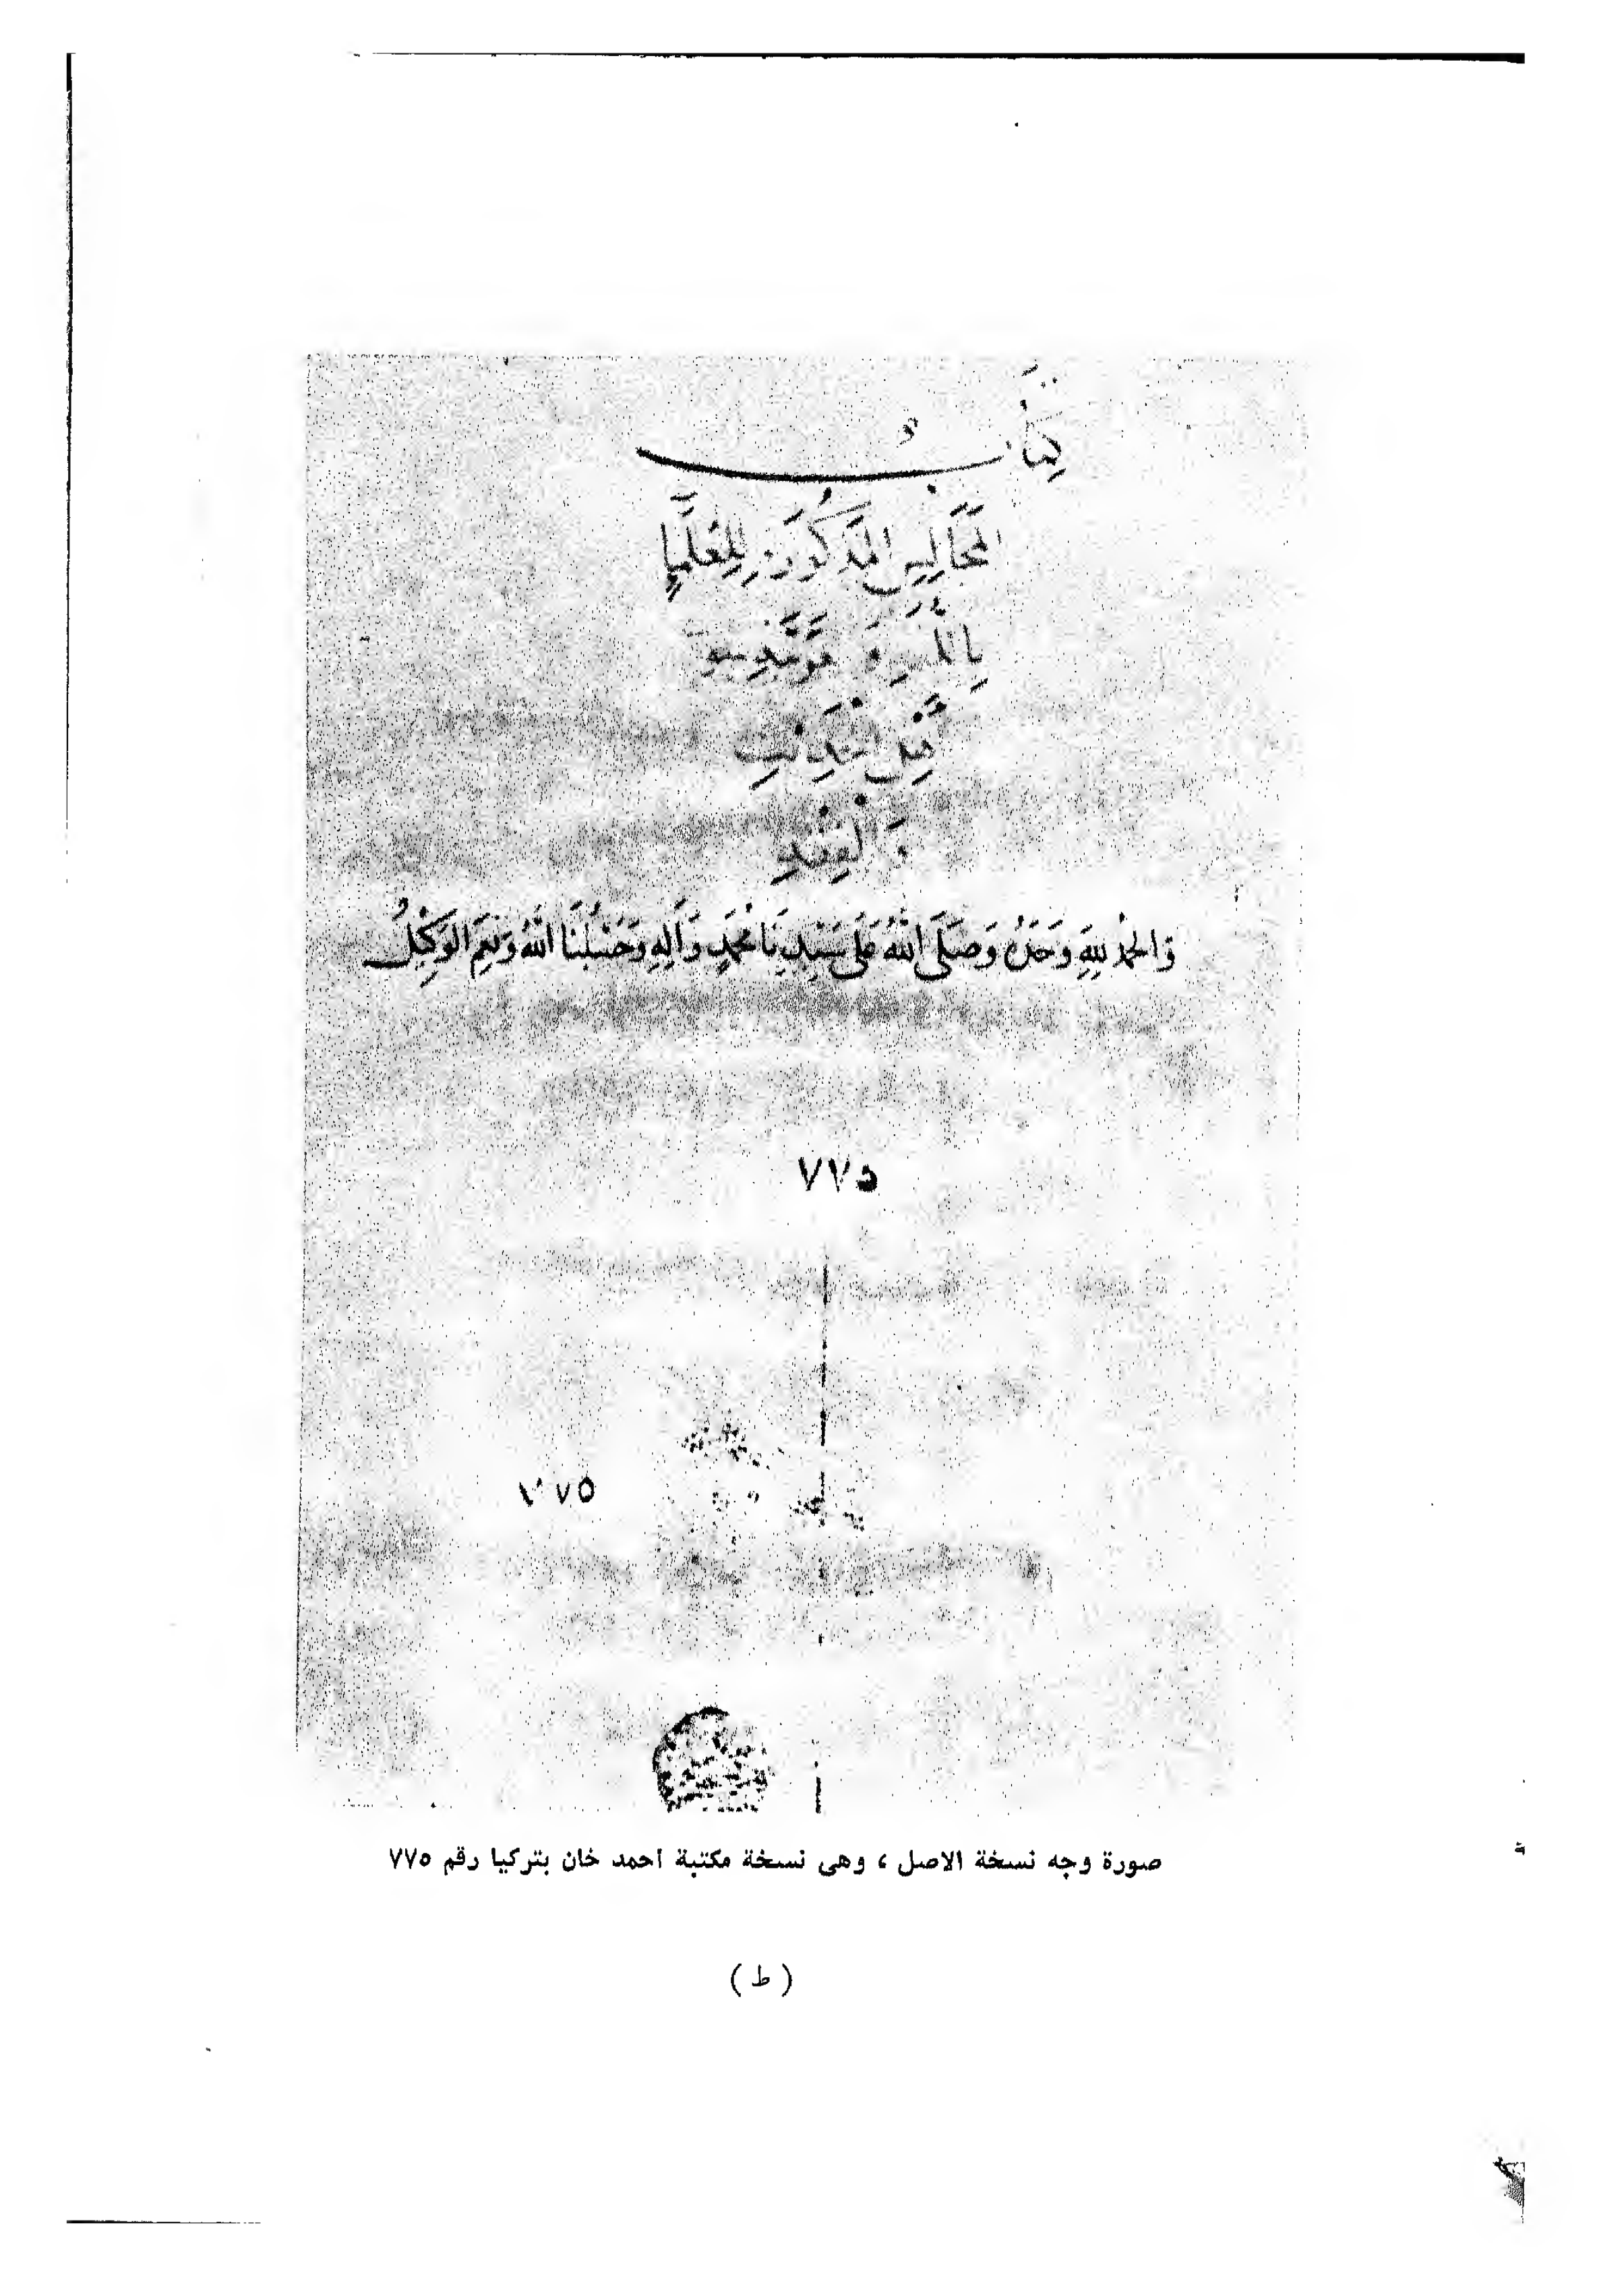 كِتَابُ
المَجَالِسِ المَذْكُورَةِ لِلْعُلَمَاءِ
بِاللُّغَةِ وَالْعَرَبِيَّةِ
الْحَدِيثِ
وَالْفِقْهِ
وَالحَمْدُ لِلَّهِ وَحْدَهُ وَصَلَّى اللَّهُ عَلَى سَيِّدِنَا مُحَمَّدٍ وَآلِهِ وَحَسْبُنَا اللَّهُ وَنِعْمَ الْوَكِيلُ
٧٧٥
٧٧٥
صورة وجه نسخة الاصل ، وهى نسخة مكتبة احمد خان بتركيا رقم ٧٧٥
( ط )